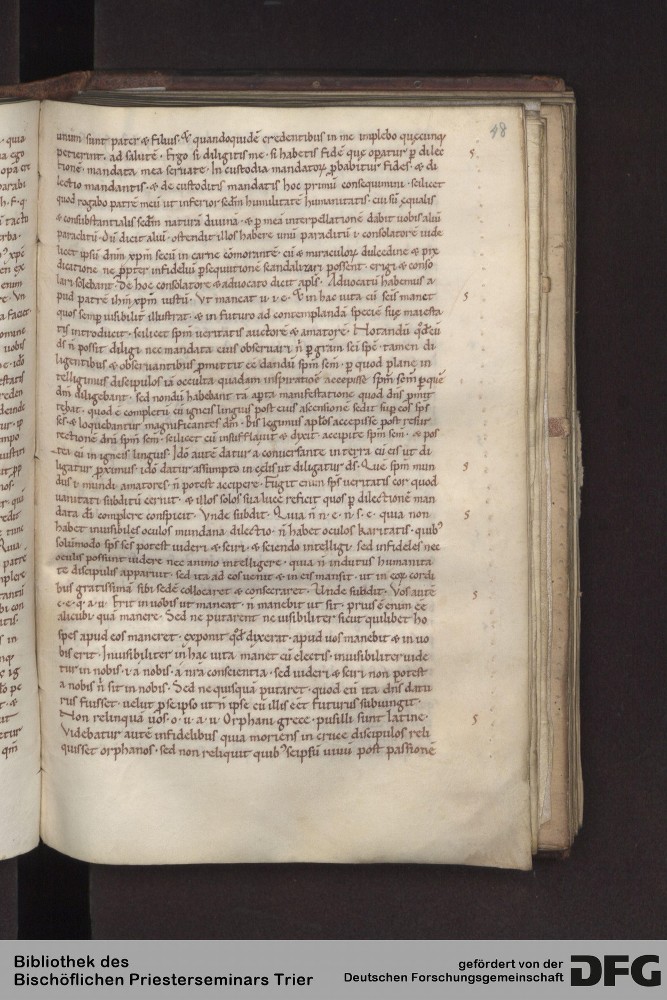 48
unum sunt pater & filius. & quandoquidē credentibus in me implebo quęcunq;
petierint. ad salutē. Ergo si diligitis me. si habetis fidē quę opatur p dilec
tionē. mandata mea servate. In custodia mandatoꝝ pbabitur fides. & di
lectio mandantis. & de custoditis mandatis hoc primū consequimini. scilicet
quod rogabo patrē meū ut inferior sedm humilitatē humanitatis. cui sū ęqualis
& consubstantialis sedm naturā divinā. & p mea interpellationē dabit vobis aliū
paraclitū. Dū dicit aliū. ostendit illos habere unū paraclitū i. consolatorē vide
licet ipsū dnm xpm secū in carne cōmorantē. cū & miraculoꝝ dulcedine & pre
dicatione ne ppter infideliū psequutionē scandalizari possent. erigi & conso
lari solebant. De hoc consolatore & advocato dicit apls. Advocatū habemus a
pud patrē ihm xpm iustū. Ut maneat v. i. ę. & in hac vita cū scis manet
quos semp invisibilit illustrat. & in futuro ad contemplandā speciē suę maiesta
tis introducit. scilicet spm veritatis auctorē & amatorē. Notandū qđ cū
ds n̄ possit diligi nec mandata eius observari n̄ p grām sci sps. tamen di
ligentibus & observantibus pmittit eē dandū spm scm. p quod plane in
telligimus discipulos iā occulta quadam inspiratione accepisse spm scm p quē
dm diligebant. sed nondū habebant tā apta manifestatione quod dns pmit
tebat. quod ē completū cū igneis linguis post eius ascensionē sedit sup eos sps
scs. & loquebantur magnificantes dm. Bis legimus aplos accepisse post resur
rectionē dni spm scm. scilicet cū insufflavit & dixit. accipite spm scm. & pos
tea cū in igneis linguis. Ido autē datur a conversante in terra cū eis ut di
ligatur pximus. ido datur assumpto in celis ut diligatur ds. Quē spm mun
dus i. mundi amatores n̄ potest accipere. Fugit enim sps veritatis cor quod
vanitati subditū cernit. & illos solos sua luce reficit quos p dilectionē man
data di complere conspicit. Unde subdit. Quia n̄ n. e. n̄ s. e. quia non
habet invisibiles oculos mundana dilectio. n̄ habet oculos karitatis. quib'
solūmodo sps scs potest videri & sciri. & sciendo intelligi. sed infideles nec
oculis possunt videre nec animo intelligere. quia n̄ indutus humanita
te discipulis apparuit. sed ita ad eos venit & in eis mansit. ut in eoꝝ cordi
bus gratissimā sibi sedē collocaret & consecraret. Unde subdit. Vos autē
c. e. q. a. v. Erit in vobis ut maneat. n̄ manebit ut sit. prius ē enim eē
alicubi quā manere. Sed ne putarent ne visibiliter sicut quilibet ho
spes apud eos maneret. exponit qđ dixerat. apud vos manebit & in vo
bis erit. Invisibiliter in hac vita manet cū electis. invisibiliter vide
tur in nobis. i. a nobis. a nrā conscientia. sed videri & sciri non potest
a nobis n̄ sit in nobis. Sed ne quisquā putaret. quod cū ita dns datu
rus fuisset. velut p se ipso ut n̄ ipse cū illis eēt futurus subiungit.
Non relinquā vos. o. v. a. v. Orphani grece. pusilli sunt latine.
Videbatur autē infidelibus quia moriens in cruce discipulos reli
quisset orphanos. sed non reliquit quib' seipsū vivū post passionē
Bibliothek des
Bischöflichen Priesterseminars Trier
gefördert von der
Deutschen Forschungsgemeinschaft
DFG